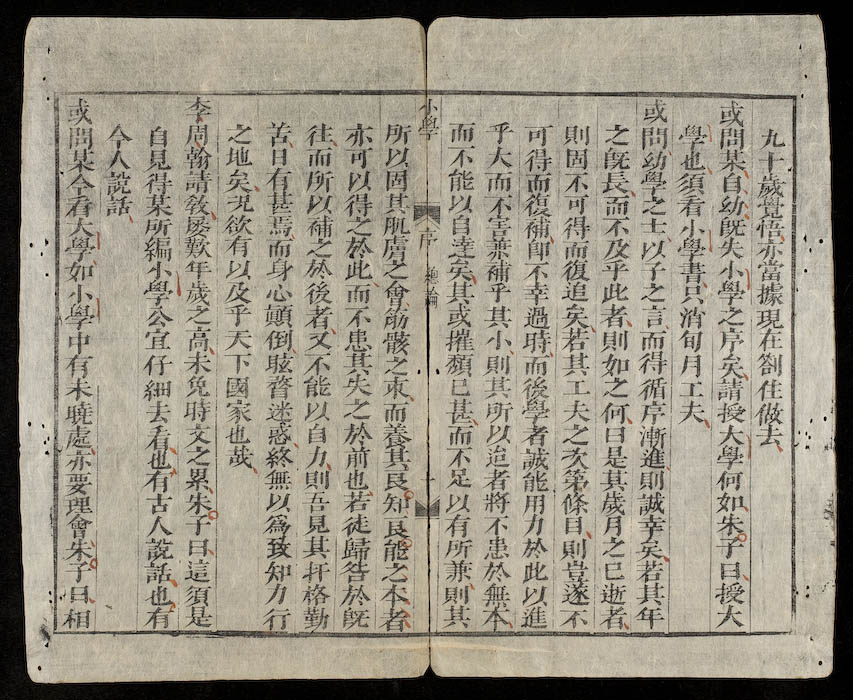 九十歲覺悟亦當據現在劄住做去
或問某自幼旣失小學之序矣請授大學何如朱子曰授大
學也須看小學書只消旬月工夫
或問幼學之士以子之言而得循序漸進則誠幸矣若其年
之旣長而不及乎此者則如之何曰是其歲月之已逝者
則固不可得而復追矣若其工夫之次第條目則豈遂不
可得而復補卽不幸過時而後學者誠能用力於此以進
乎大而不害兼補乎其小則其所以進者將不患於無本
而不能以自達矣其或摧頹已甚而不足以有所兼則其
小學
序
總論
十
所以固其肌膚之會筋骸之束而養其良知良能之本者
亦可以得之於此而不患其失之於前也若徒歸咎於旣
往而所以補之於後者又不能以自力則吾見其扞格勤
苦日有甚焉而身心顚倒眩瞀迷惑終無以爲致知力行
之地矣况欲有以及乎天下國家也哉
李周翰請敎屢歎年歲之高未免時文之累朱子曰這須是
自見得某所編小學公宜仔細去看也有古人說話也有
今人說話
或問某今看大學如小學中有未曉處亦要理會朱子曰相